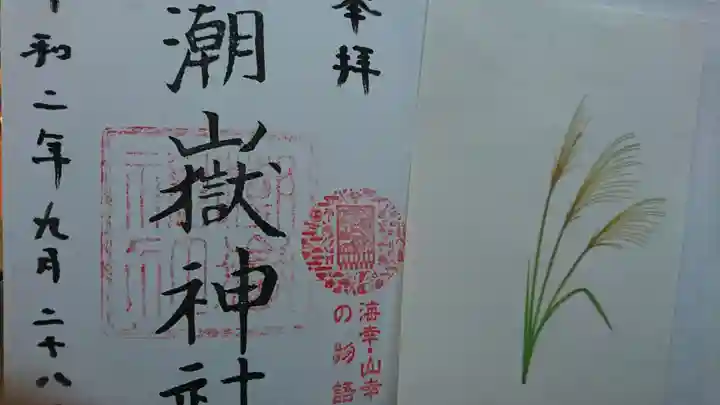 奉拝
潮嶽神社
海幸・山幸
の物語
令和二年九月二十八